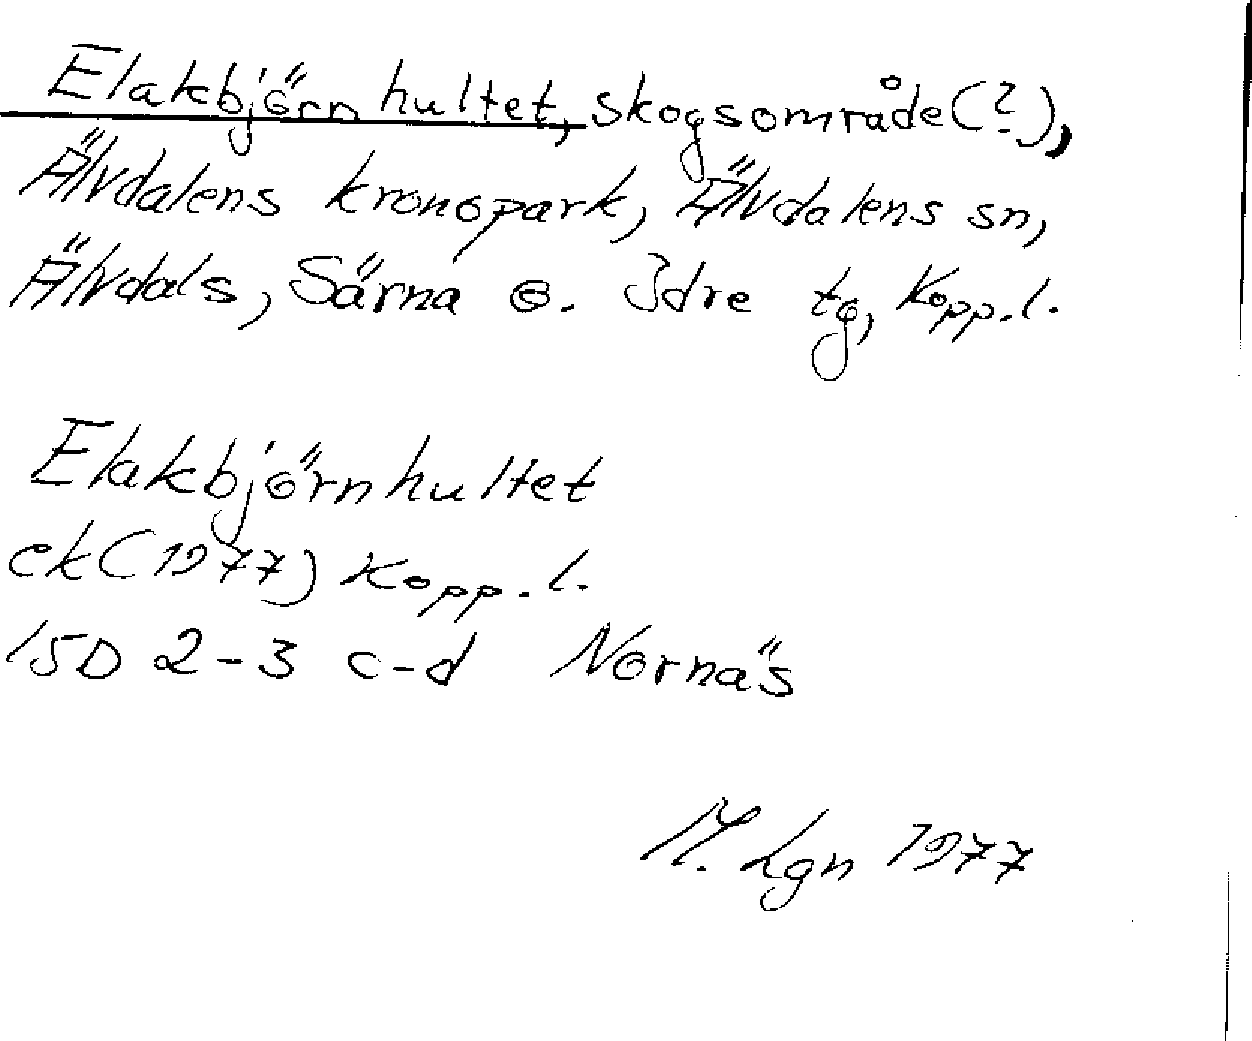 Elakbjörnhultet, skogsområde(?),
Älvdalens kronopark, Älvdalens sn,
Älvdals, Särna o. Idre tg, Kopp.l.
Elakbjörnhultet
ek(1977) Kopp.l.
15D 2-3 c-d Nornäs
M. Lgn 1977